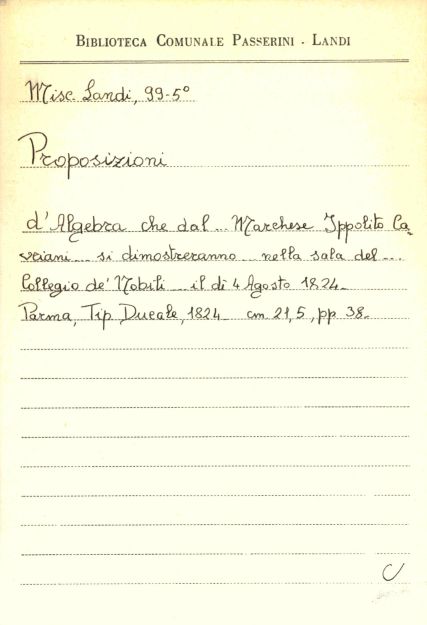 BIBLIOTECA COMUNALE PASSERINI - LANDI
Misc. Landi, 99-5°
Proposizioni
d'Algebra che dal ... Marchese Ippolito Ca-
vriani ... si dimostreranno ... nella sala del ...
Collegio de' Nobili ... il dì 4 Agosto 1824.
Parma, Tip. Ducale, 1824. cm. 21,5, pp. 38.
C